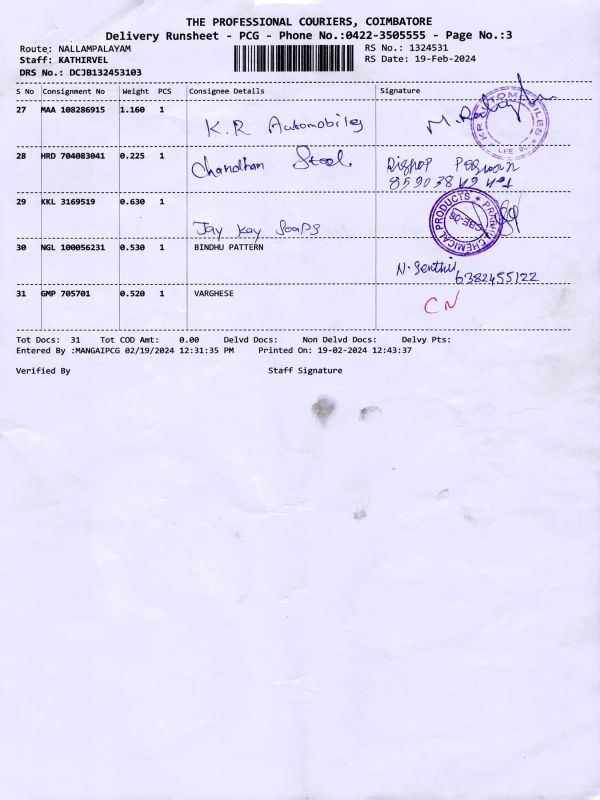 THE PROFESSIONAL COURIERS, COIMBATORE
Delivery Runsheet - PCG - Phone No.:0422-3505555 - Page No.:3
Route: NALLAMPALAYAM RS No.: 1324531
Staff: KATHIRVEL RS Date: 19-Feb-2024
DRS No.: DCJB132453103
S No Consignment No Weight PCS Consignee Details Signature
27 MAA 108286915 1.160 1 K.R Automobiles
KR AUTOMOBILES
28 HRD 704083041 0.225 1 Chandhan Steel
29 KKL 3169519 0.630 1 Jay Kay Soaps
CHEMICAL PRODUCTS CBE-06
30 NGL 100056231 0.530 1 BINDHU PATTERN N. Senthil
6382455122
31 GMP 705701 0.520 1 VARGHESE CN
Tot Docs: 31 Tot COD Amt: 0.00 Delvd Docs: Non Delvd Docs: Delvy Pts:
Entered By :MANGAIPCG 02/19/2024 12:31:35 PM Printed On: 19-02-2024 12:43:37
Verified By Staff Signature